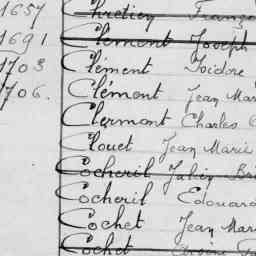 1657 Chretien Franço
1691 Clement Joseph
1703 Clément Isidore
1706. Clémont Jean Mar
Clermont Charles
Clouet Jean Marie
Cocheril
Cocheril Edouard
Cochet Jean Mari
Cochet